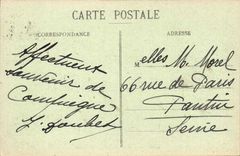 CARTE POSTALE
CORRESPONDANCE
ADRESSE
Affectueux
souvenir de
Compiègne
J. Joubet
Melles M. Morel
66 rue de Paris
Pantin
Seine